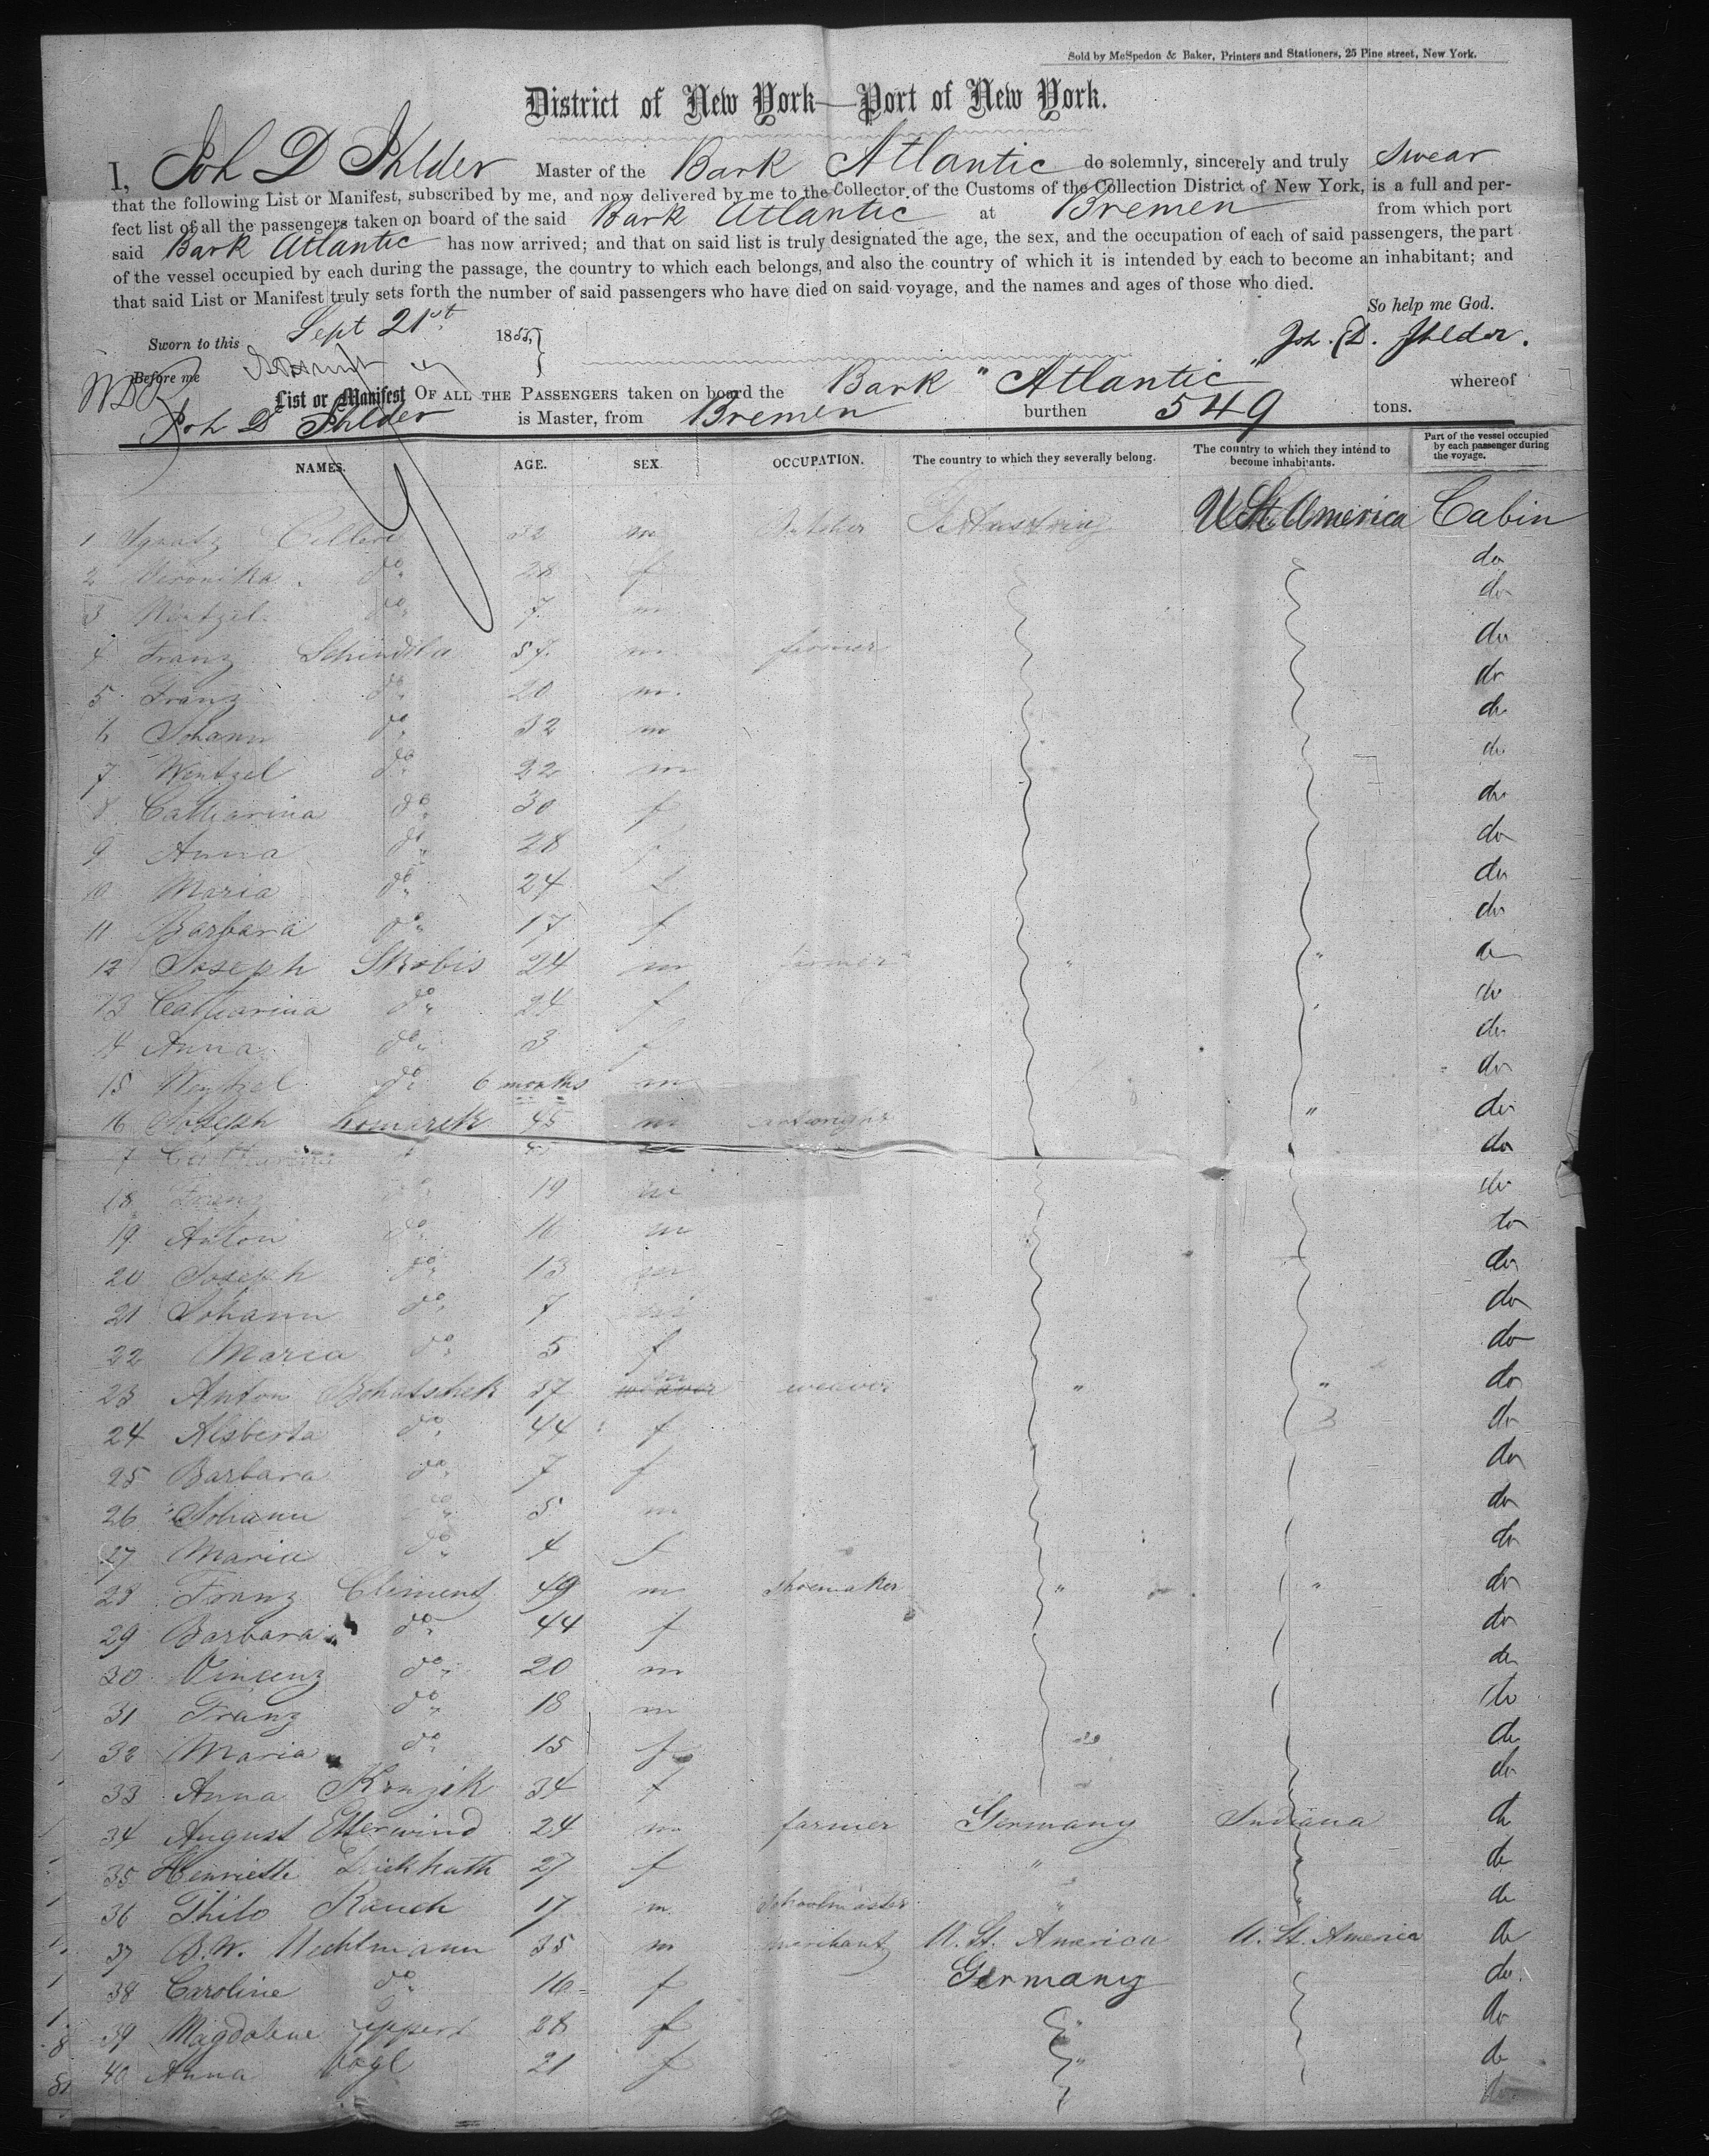 Sold by McSpedon & Baker, Printers and Stationers, 25 Pine street, New York.
District of New York—Port of New York.
I, Joh D Ihlder Master of the Bark Atlantic do solemnly, sincerely and truly swear
that the following List or Manifest, subscribed by me, and now delivered by me to the Collector of the Customs of the Collection District of New York, is a full and per-
fect list of all the passengers taken on board of the said Bark Atlantic at Bremen from which port
said Bark Atlantic has now arrived; and that on said list is truly designated the age, the sex, and the occupation of each of said passengers, the part
of the vessel occupied by each during the passage, the country to which each belongs, and also the country of which it is intended by each to become an inhabitant; and
that said List or Manifest truly sets forth the number of said passengers who have died on said voyage, and the names and ages of those who died.
So help me God.
Sworn to this Sept 21st 185
Joh. D. Ihlder.
Before me
List or Manifest OF ALL THE PASSENGERS taken on board the Bark "Atlantic" whereof
Joh D Ihlder is Master, from Bremen burthen 549 tons.
NAMES. AGE. SEX. OCCUPATION. The country to which they severally belong. The country to which they intend to become inhabitants. Part of the vessel occupied by each passenger during the voyage.
1 Ignatz m Butcher Austria U St. America Cabin
2 Veronika do 28 f do
3 Wentzel do 7 m do
4 Franz Schindler 57 m farmer do
5 Franz do 20 m do
6 Johann do 32 m do
7 Wentzel do 22 m do
8 Catharina do 30 f do
9 Anna do 28 f do
10 Maria do 24 f do
11 Barbara do 17 f do
12 Joseph Skobis 24 m farmer " " do
13 Catharina do 24 f do
14 Anna do 3 f do
15 Wentzel do 6 months m do
16 Joseph 45 m " do
17 Catharina do
18 Franz do 19 m do
19 Anton do 16 m do
20 Joseph do 13 m do
21 Johann do 7 m do
22 Maria do 5 f do
23 Anton 37 m weaver " " do
24 do 44 f do
25 Barbara do 7 f do
26 Johann do 5 m do
27 Maria do 4 f do
28 Franz Climent 49 m shoemaker " " do
29 Barbara do 44 f do
30 Vincenz do 20 m do
31 Franz do 18 m do
32 Maria do 15 f do
33 Anna 34 f do
34 August Ellerwind 24 m farmer Germany Indiana do
35 Henriette 27 f " " do
36 Thilo Rauch 17 m schoolmaster " " do
37 B.W. 35 m merchant U. St. America U. St. America do
38 Caroline do 16 f Germany do
39 Magdalene 28 f " do
40 Anna Vogl 21 f " do